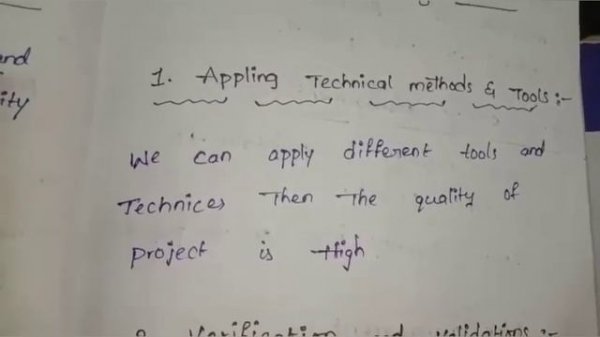 and
ity
1. Appling Technical methods & Tools :-
We can apply different tools and
Technices Then The quality of
project is High
2. Verification and validations :-